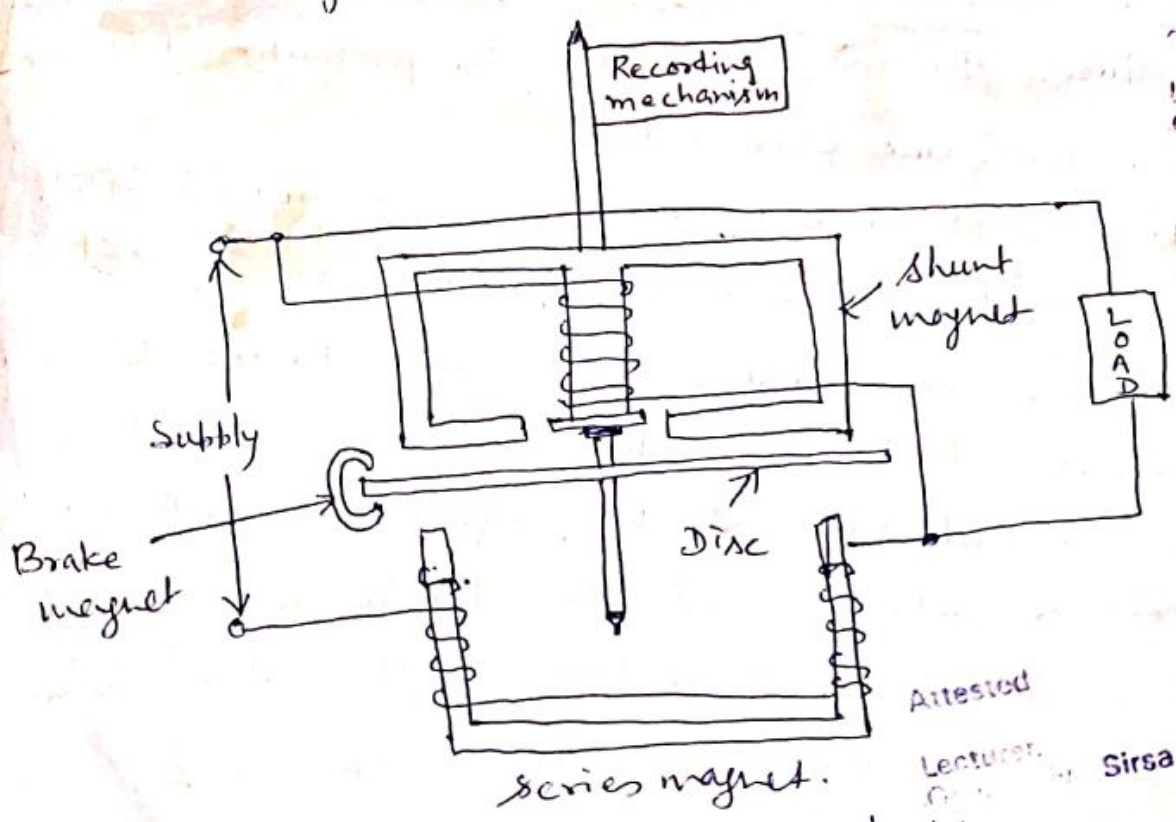 Recording
mechanism
shunt
magnet
L
O
A
D
Subbly
Brake
magnet
Disc
series magnet.
Attested
Lecturer
Sirsa